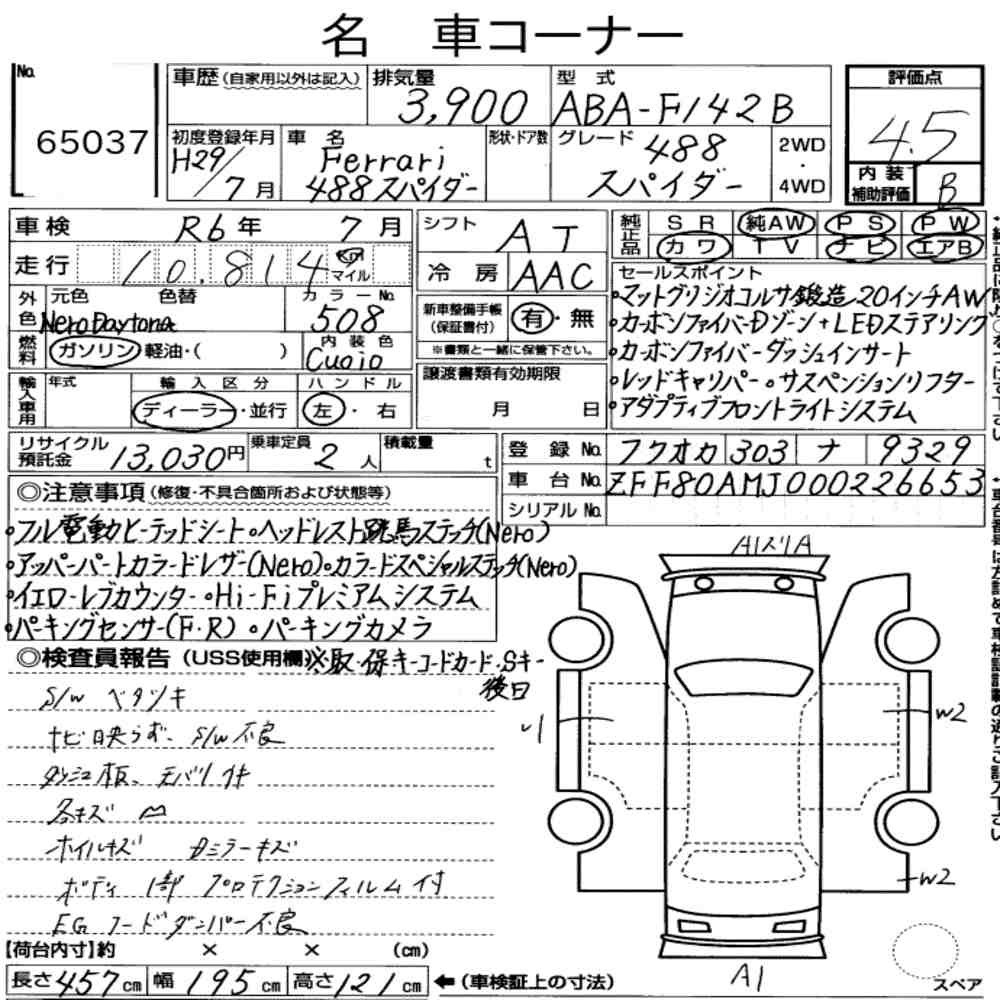 名 車コーナー
No. 65037
車歴 (自家用以外は記入)
排気量 3,900
型式 ABA-F142B
評価点 4.5
内装補助評価 B
初度登録年月 H29/7月
車名 Ferrari 488スパイダー
形状・ドア数
グレード 488 スパイダー
2WD・4WD
車検 R6年 7月
走行 10,814 Km マイル
シフト AT
冷房 AAC
純正品 SR 純AW PS PW
カワ TV ナビ エアB
外色 元色 色替 Nero Daytona
カラーNo. 508
燃料 ガソリン・軽油・( )
内装色 Cuoio
新車整備手帳(保証書付) 有・無
※書類と一緒に保管下さい。
セールスポイント
・マットグリジオコルサ鍛造20インチAW
・カーボンファイバーDゾーン+LEDステアリング
・カーボンファイバーダッシュインサート
・レッドキャリパー・サスペンションリフター
・アダプティブフロントライトシステム
輸入車用 年式
輸入区分 ディーラー・並行
ハンドル 左・右
譲渡書類有効期限
月 日
リサイクル預託金 13,030円
乗車定員 2人
積載量 t
登録No. フクオカ 303 ナ 9329
車台No. ZFF80AMJ000226653
シリアルNo.
◎注意事項 (修復・不具合箇所および状態等)
・フル電動ヒーテッドシート・ヘッドレスト跳馬ステッチ(Nero)
・アッパーパートカラードレザー(Nero)・カラードスペシャルステッチ(Nero)
・イエローレブカウンター・Hi-Fiプレミアムシステム
・パーキングセンサー(F・R) ・パーキングカメラ
◎検査員報告 (USS使用欄) ※取・保キーコードカード・Sキー
後日
S/W ベタツキ
ナビ映らず、S/W不良
ダッシュ板、モバリ付
各キズ
ホイルキズ Dミラーキズ
ボディ1部 プロテクションフィルム付
EGフードダンパー不良
A1スリA
W2
W2
A1
スペア
【荷台内寸】約 × × (cm)
長さ457cm 幅195cm 高さ121cm ←(車検証上の寸法)